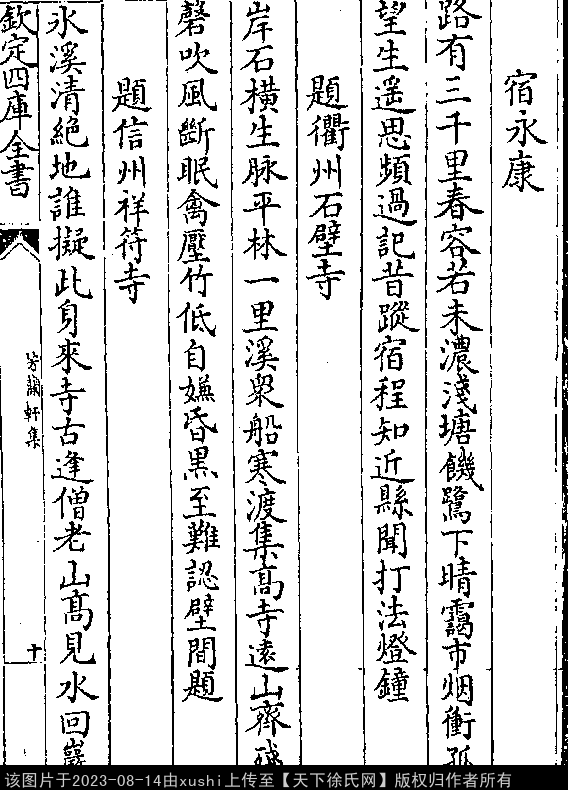 宿永康
路有三千里春容若未濃淺塘饑鷺下晴靄市烟衝孤
望生遥思頻過記昔蹤宿程知近縣聞打法燈鐘
題衢州石壁寺
岸石橫生脉平林一里溪衆船寒渡集髙寺遠山齊殘
磬吹風斷眠禽壓竹低自嫌昏黒至難認壁間題
題信州祥符寺
氷溪清絶地誰擬此身來寺古逢僧老山髙見水回巖
欽定四庫全書
芳蘭軒集
十
该图片于2023-08-14由xushi上传至【天下徐氏网】版权归作者所有